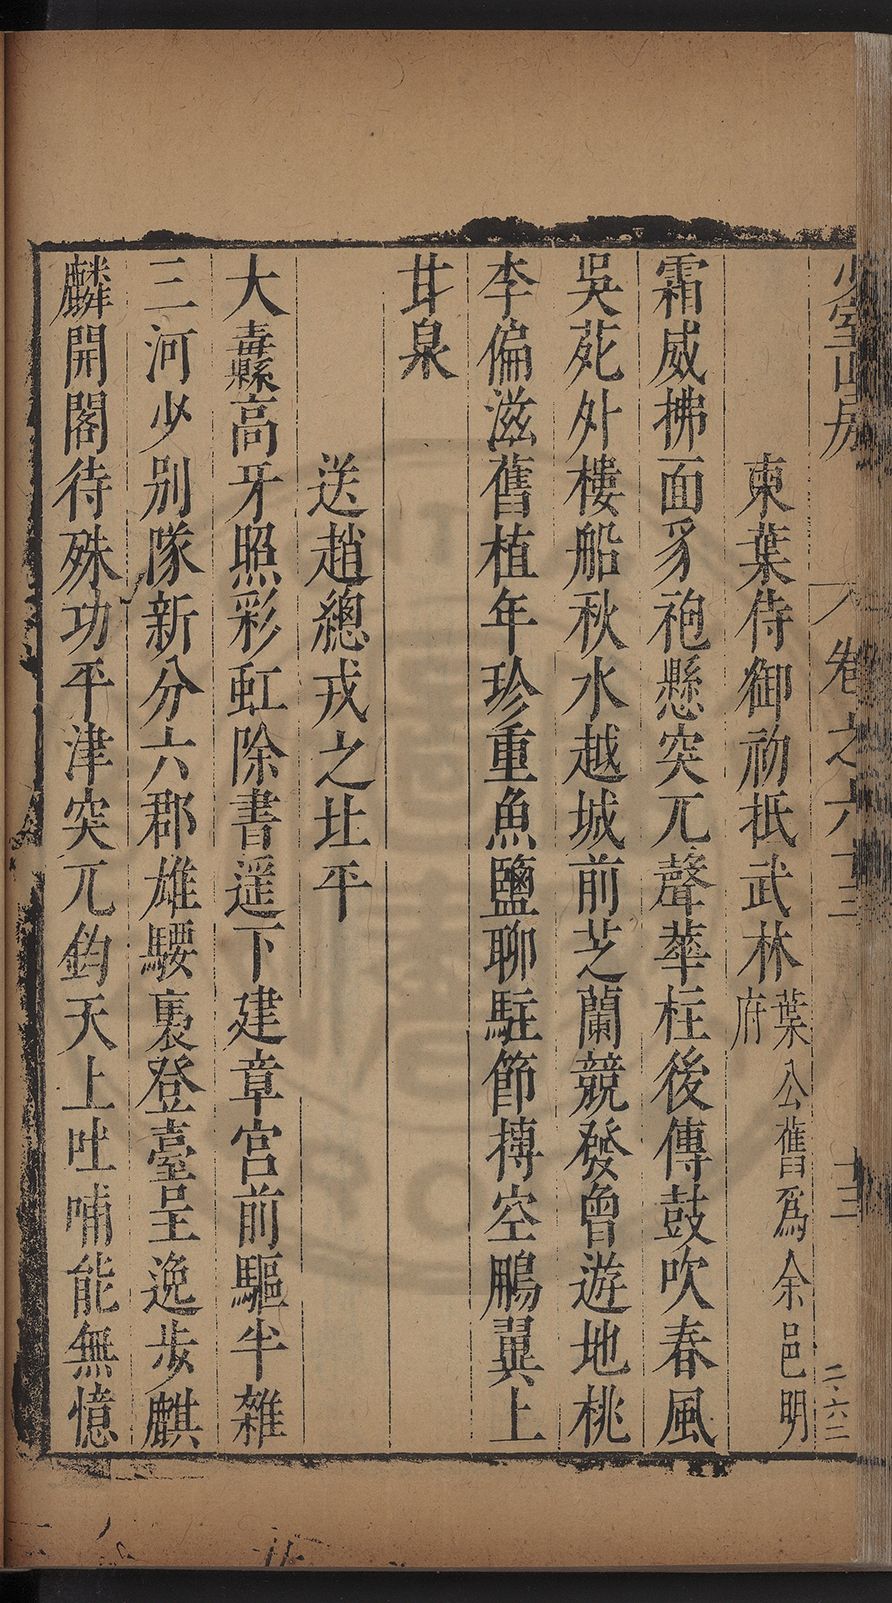 少室山房 卷之六十三 十三 二·六二
柬葉侍御初抵武林葉公舊爲余邑明府
霜威拂面豸袍懸突兀聲華柱後傳鼓吹春風
吳苑外樓船秋水越城前芝蘭競發曾遊地桃
李偏滋舊植年珍重魚鹽聊駐節摶空鵬翼上
甘泉
送趙總戎之北平
大纛高牙照彩虹除書遥下建章宫前驅半雜
三河少別隊新分六郡雄騕褭登臺呈逸步麒
麟開閣待殊功平津突兀鈞天上吐哺能無憶